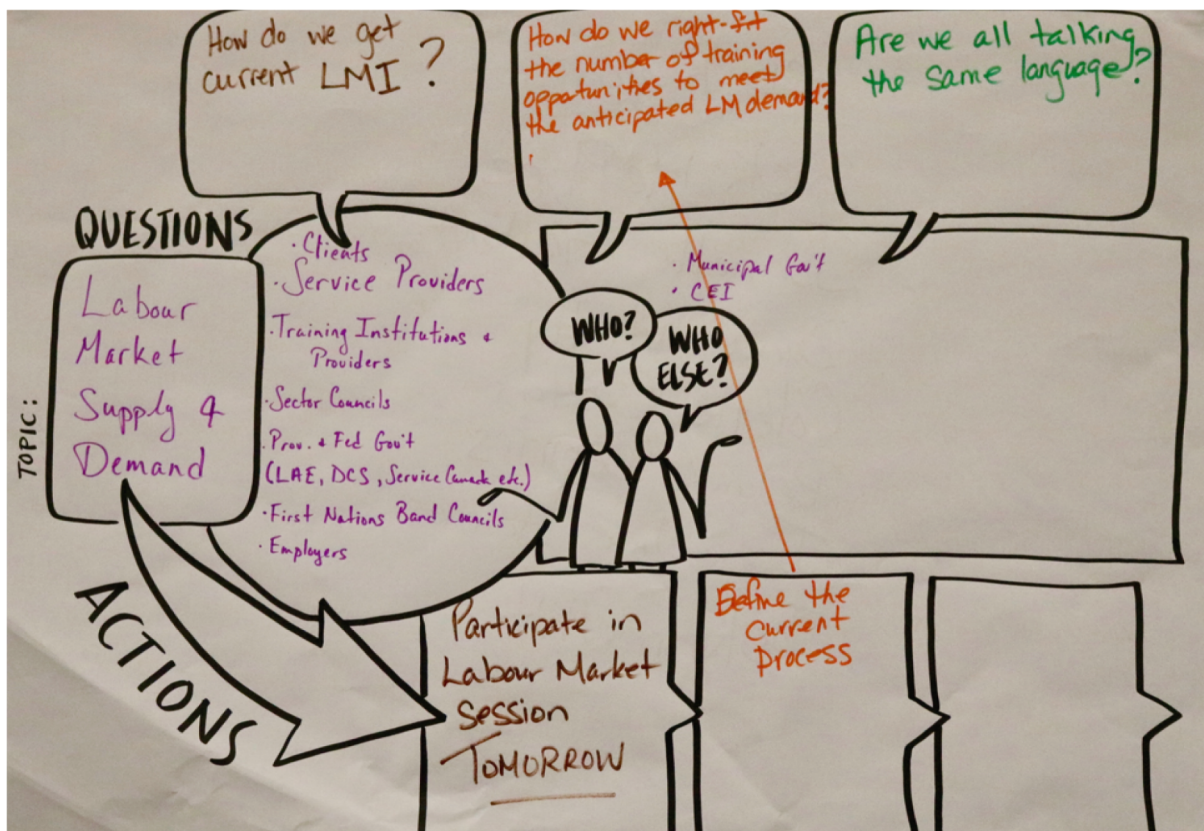 How do we get
current LMI?
How do we right-fit
the number of training
oppatunities to meet
the anticipated LM demand?
Are we all talking
the same language?
QUESTIONS
TOPIC:
Labour
Market
Supply &
Demand
· Clients
· Service Providers
· Training Institutions &
Providers
· Sector Councils
· Prov. & Fed Gov't
(LAE, DCS, Service Canada etc.)
· First Nations Band Councils
· Employers
WHO?
WHO
ELSE?
· Municipal Gov't
· CEI
ACTIONS
Participate in
Labour Market
Session
TOMORROW
Define the
current
process